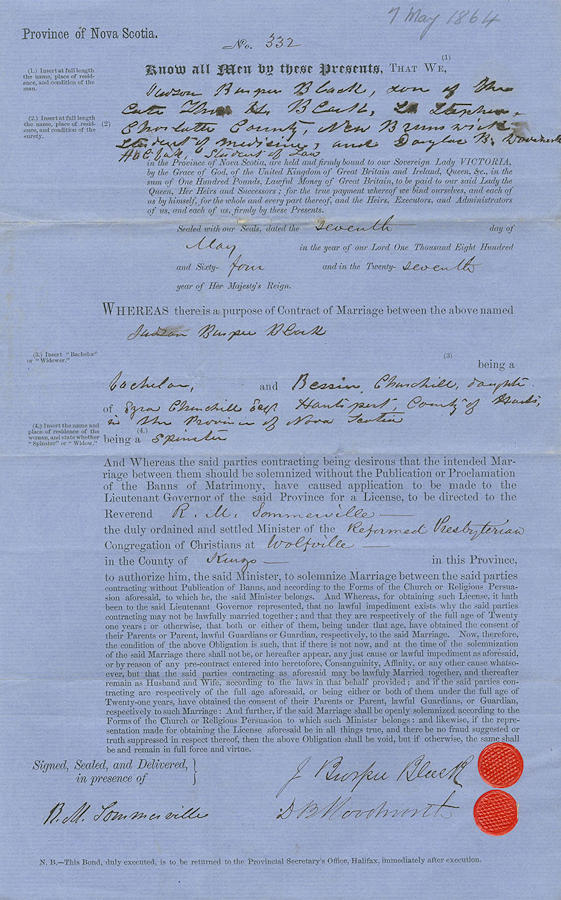 7 May 1864
Province of Nova Scotia.
No. 332
Know all Men by these Presents, THAT WE,
(1)
(1.) Insert at full length
the name, place of resid-
ence, and condition of the
man.
Judson Burpee Black, son of the
late Thos H. Black, St Stephen,
(2.) Insert at full length
the name, place of resi-
dence, and condition of the
surety.
(2)
Charlotte County, New Brunswick
Student of medicine, and Douglas B. Woodworth
Student of Law
in the Province of Nova Scotia, are held and firmly bound to our Sovereign Lady VICTORIA,
by the Grace of God, of the United Kingdom of Great Britain and Ireland, Queen, &c., in the
sum of One Hundred Pounds, Lawful Money of Great Britain, to be paid to our said Lady the
Queen, Her Heirs and Successors; for the true payment whereof we bind ourselves, and each of
us by himself, for the whole and every part thereof, and the Heirs, Executors, and Administrators
of us, and each of us, firmly by these Presents.
Sealed with our Seals, dated the seventh day of
May in the year of our Lord One Thousand Eight Hundred
and Sixty- four and in the Twenty- seventh
year of Her Majesty's Reign.
WHEREAS there is a purpose of Contract of Marriage between the above named
Judson Burpee Black
(3.) Insert "Bachelor"
or "Widower."
(3)
being a
bachelor, and Bessie Churchill, daughter
of Ezra Churchill Esqr Hantsport, County of Hants,
(4.) Insert the name and
place of residence of the
woman, and state whether
"Spinster" or "Widow."
in the Province of Nova Scotia
(4.)
being a Spinster
And Whereas the said parties contracting being desirous that the intended Mar-
riage between them should be solemnized without the Publication or Proclamation
of the Banns of Matrimony, have caused application to be made to the
Lieutenant Governor of the said Province for a License, to be directed to the
Reverend R. M. Sommerville
the duly ordained and settled Minister of the Reformed Presbyterian
Congregation of Christians at Wolfville
in the County of Kings in this Province,
to authorize him, the said Minister, to solemnize Marriage between the said parties
contracting without Publication of Banns, and according to the Forms of the Church or Religious Persua-
sion aforesaid, to which he, the said Minister belongs. And Whereas, for obtaining such License, it hath
been to the said Lieutenant Governor represented, that no lawful impediment exists why the said parties
contracting may not be lawfully married together; and that they are respectively of the full age of Twenty
one years; or otherwise, that both or either of them, being under that age, have obtained the consent of
their Parents or Parent, lawful Guardians or Guardian, respectively, to the said Marriage. Now, therefore,
the condition of the above Obligation is such, that if there is not now, and at the time of the solemnization
of the said Marriage there shall not be, or hereafter appear, any just cause or lawful impediment as aforesaid,
or by reason of any pre-contract entered into heretofore, Consanguinity, Affinity, or any other cause whatso-
ever, but that the said parties contracting as aforesaid may be lawfully Married together, and thereafter
remain as Husband and Wife, according to the laws in that behalf provided; and if the said parties con-
tracting are respectively of the full age aforesaid, or being either or both of them under the full age of
Twenty-one years, have obtained the consent of their Parents or Parent, lawful Guardians, or Guardian,
respectively to such Marriage: And further, if the said Marriage shall be openly solemnized according to the
Forms of the Church or Religious Persuasion to which such Minister belongs: and likewise, if the repre-
sentation made for obtaining the License aforesaid be in all things true, and there be no fraud suggested or
truth suppressed in respect thereof, then the above Obligation shall be void, but if otherwise, the same shall
be and remain in full force and virtue.
Signed, Sealed, and Delivered,
in presence of
J Burpee Black
R. M. Sommerville
D B Woodworth
N. B.—This Bond, duly executed, is to be returned to the Provincial Secretary's Office, Halifax, immediately after execution.